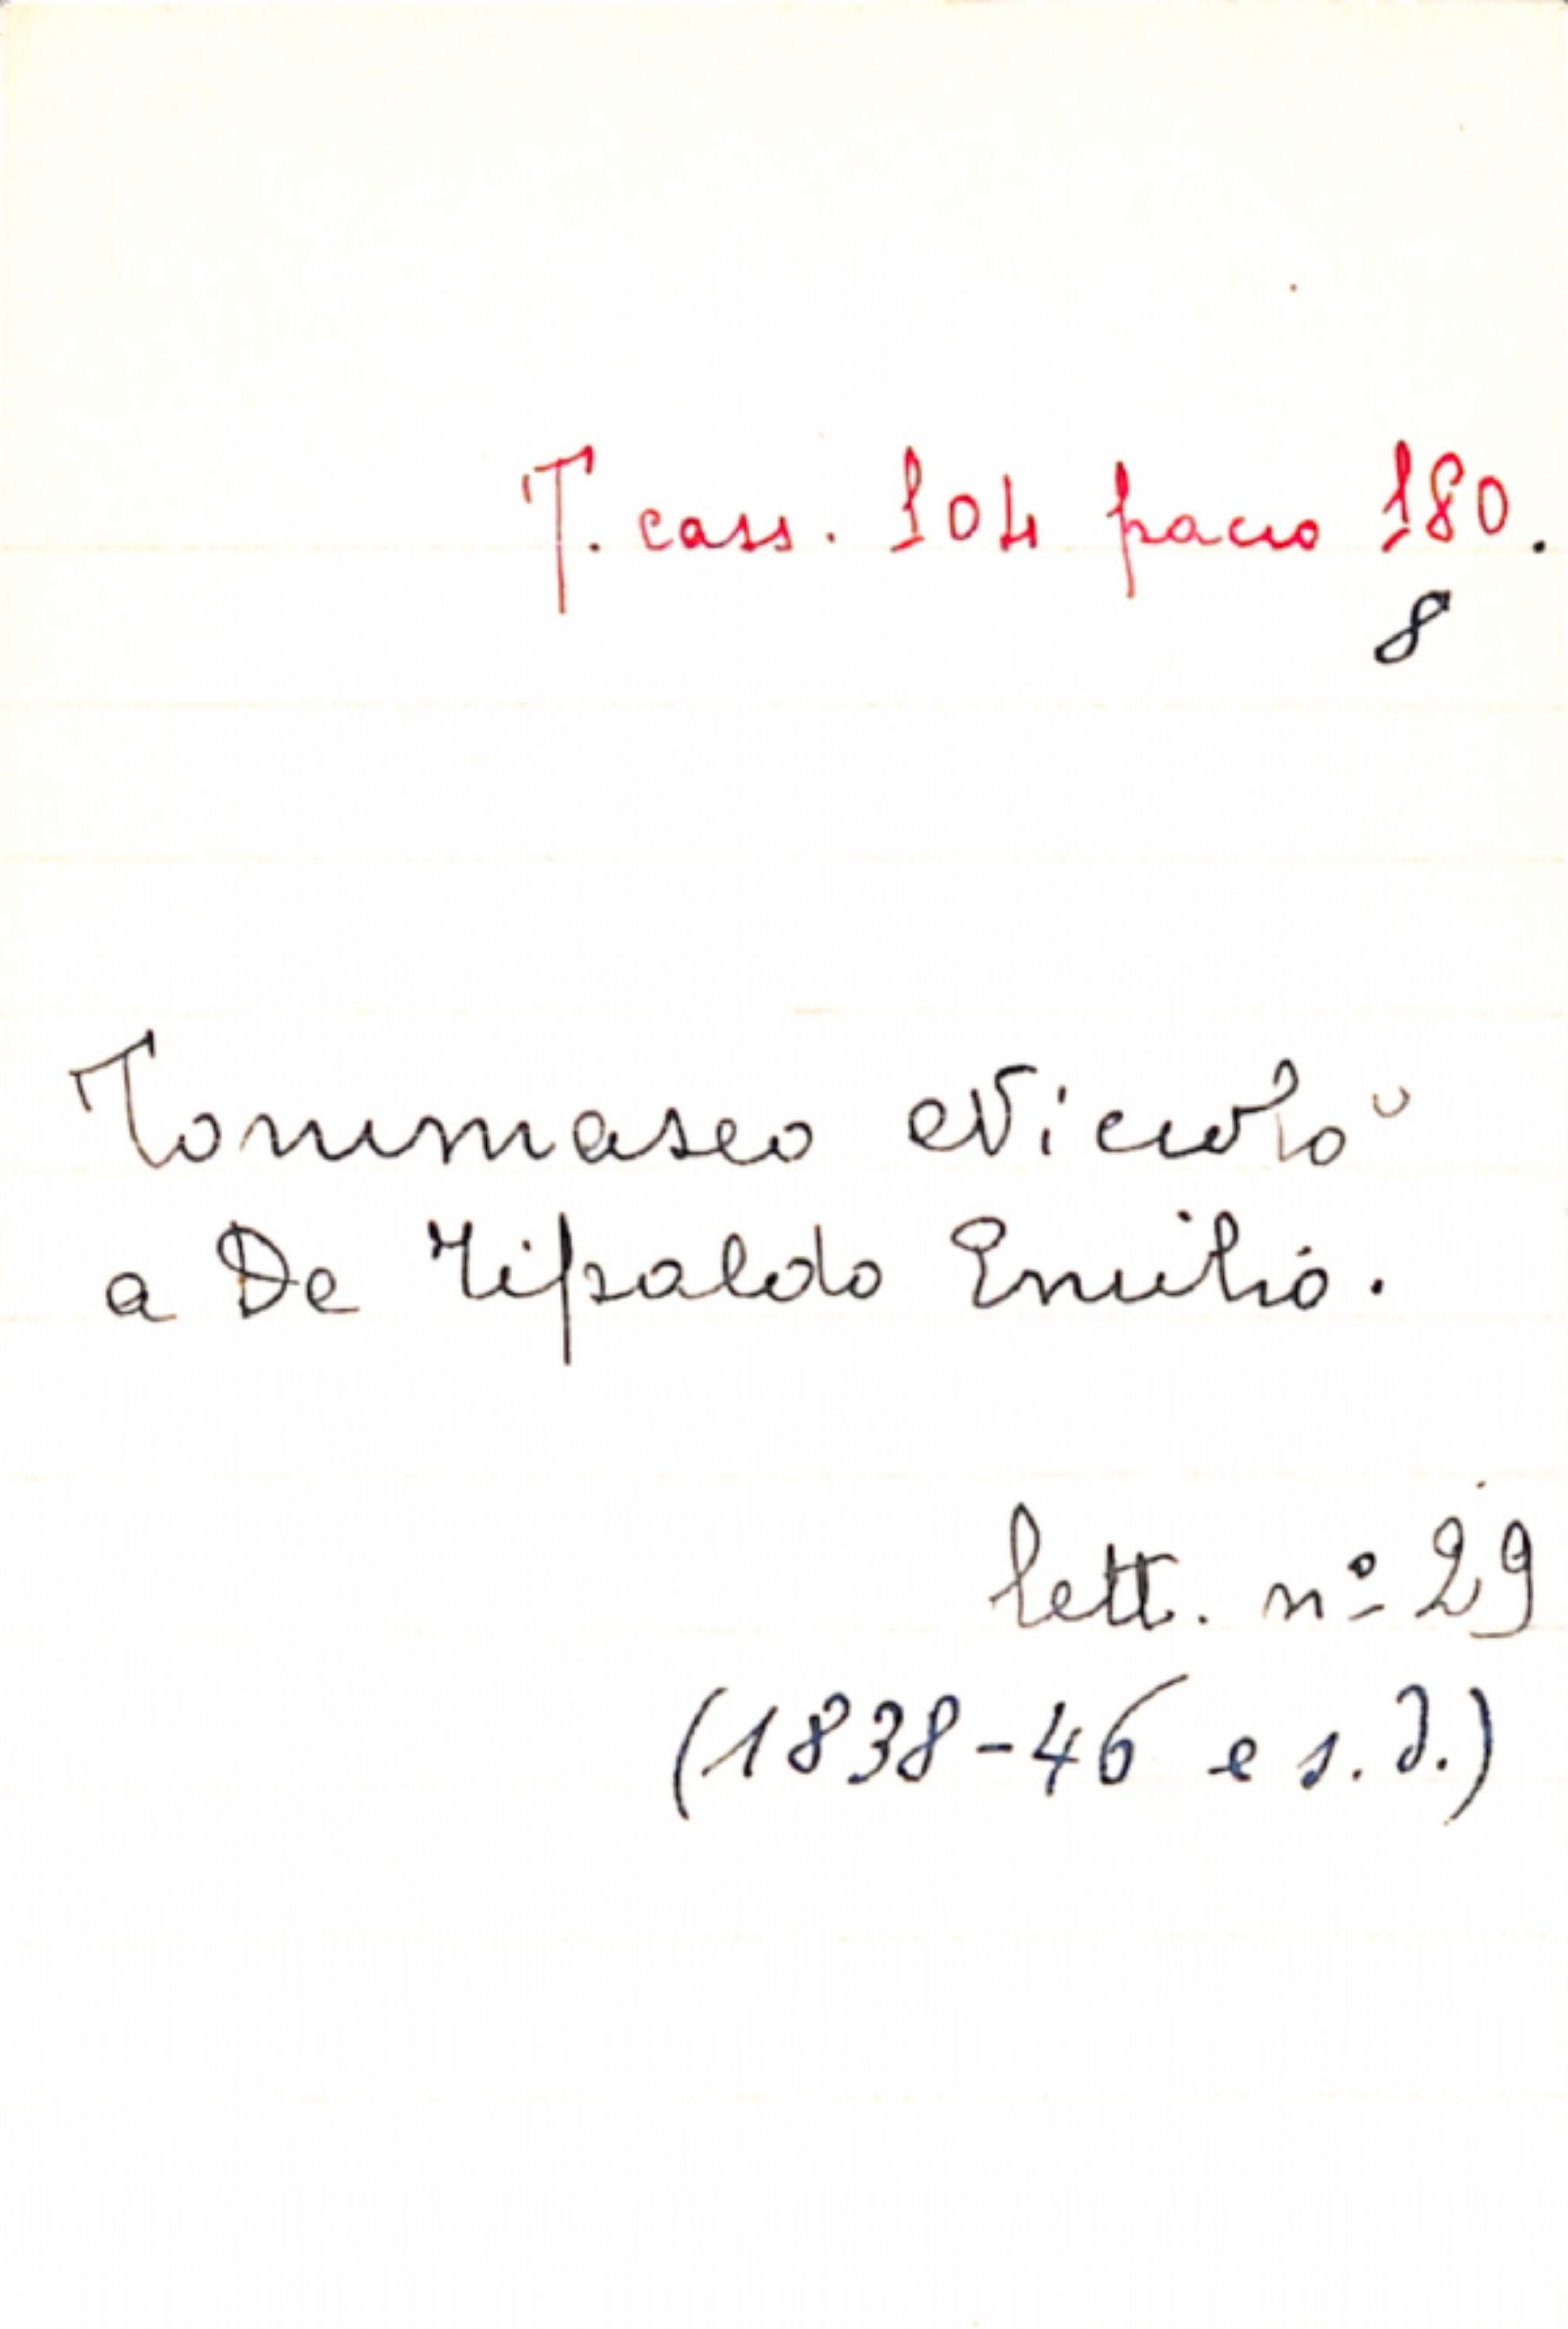 T. cass. 104 pacco 180.
8
Tommaseo Niccolò
a De Tipaldo Emilio.
lett. nº 29
(1838-46 e s.d.)